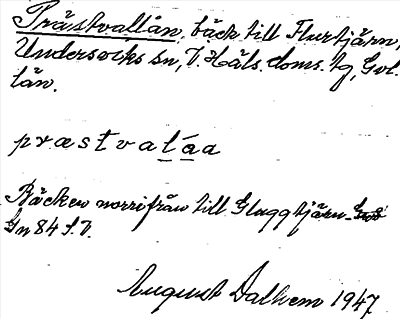 Prästvallån, bäck till Flurtjärn,
Undersviks sn, V. Häls. doms. tg, Gvl.
län.
præstvalåa
Bäcken norrifrån till Gluggtjärn
Gn 84 f. V.
August Dalhem 1947